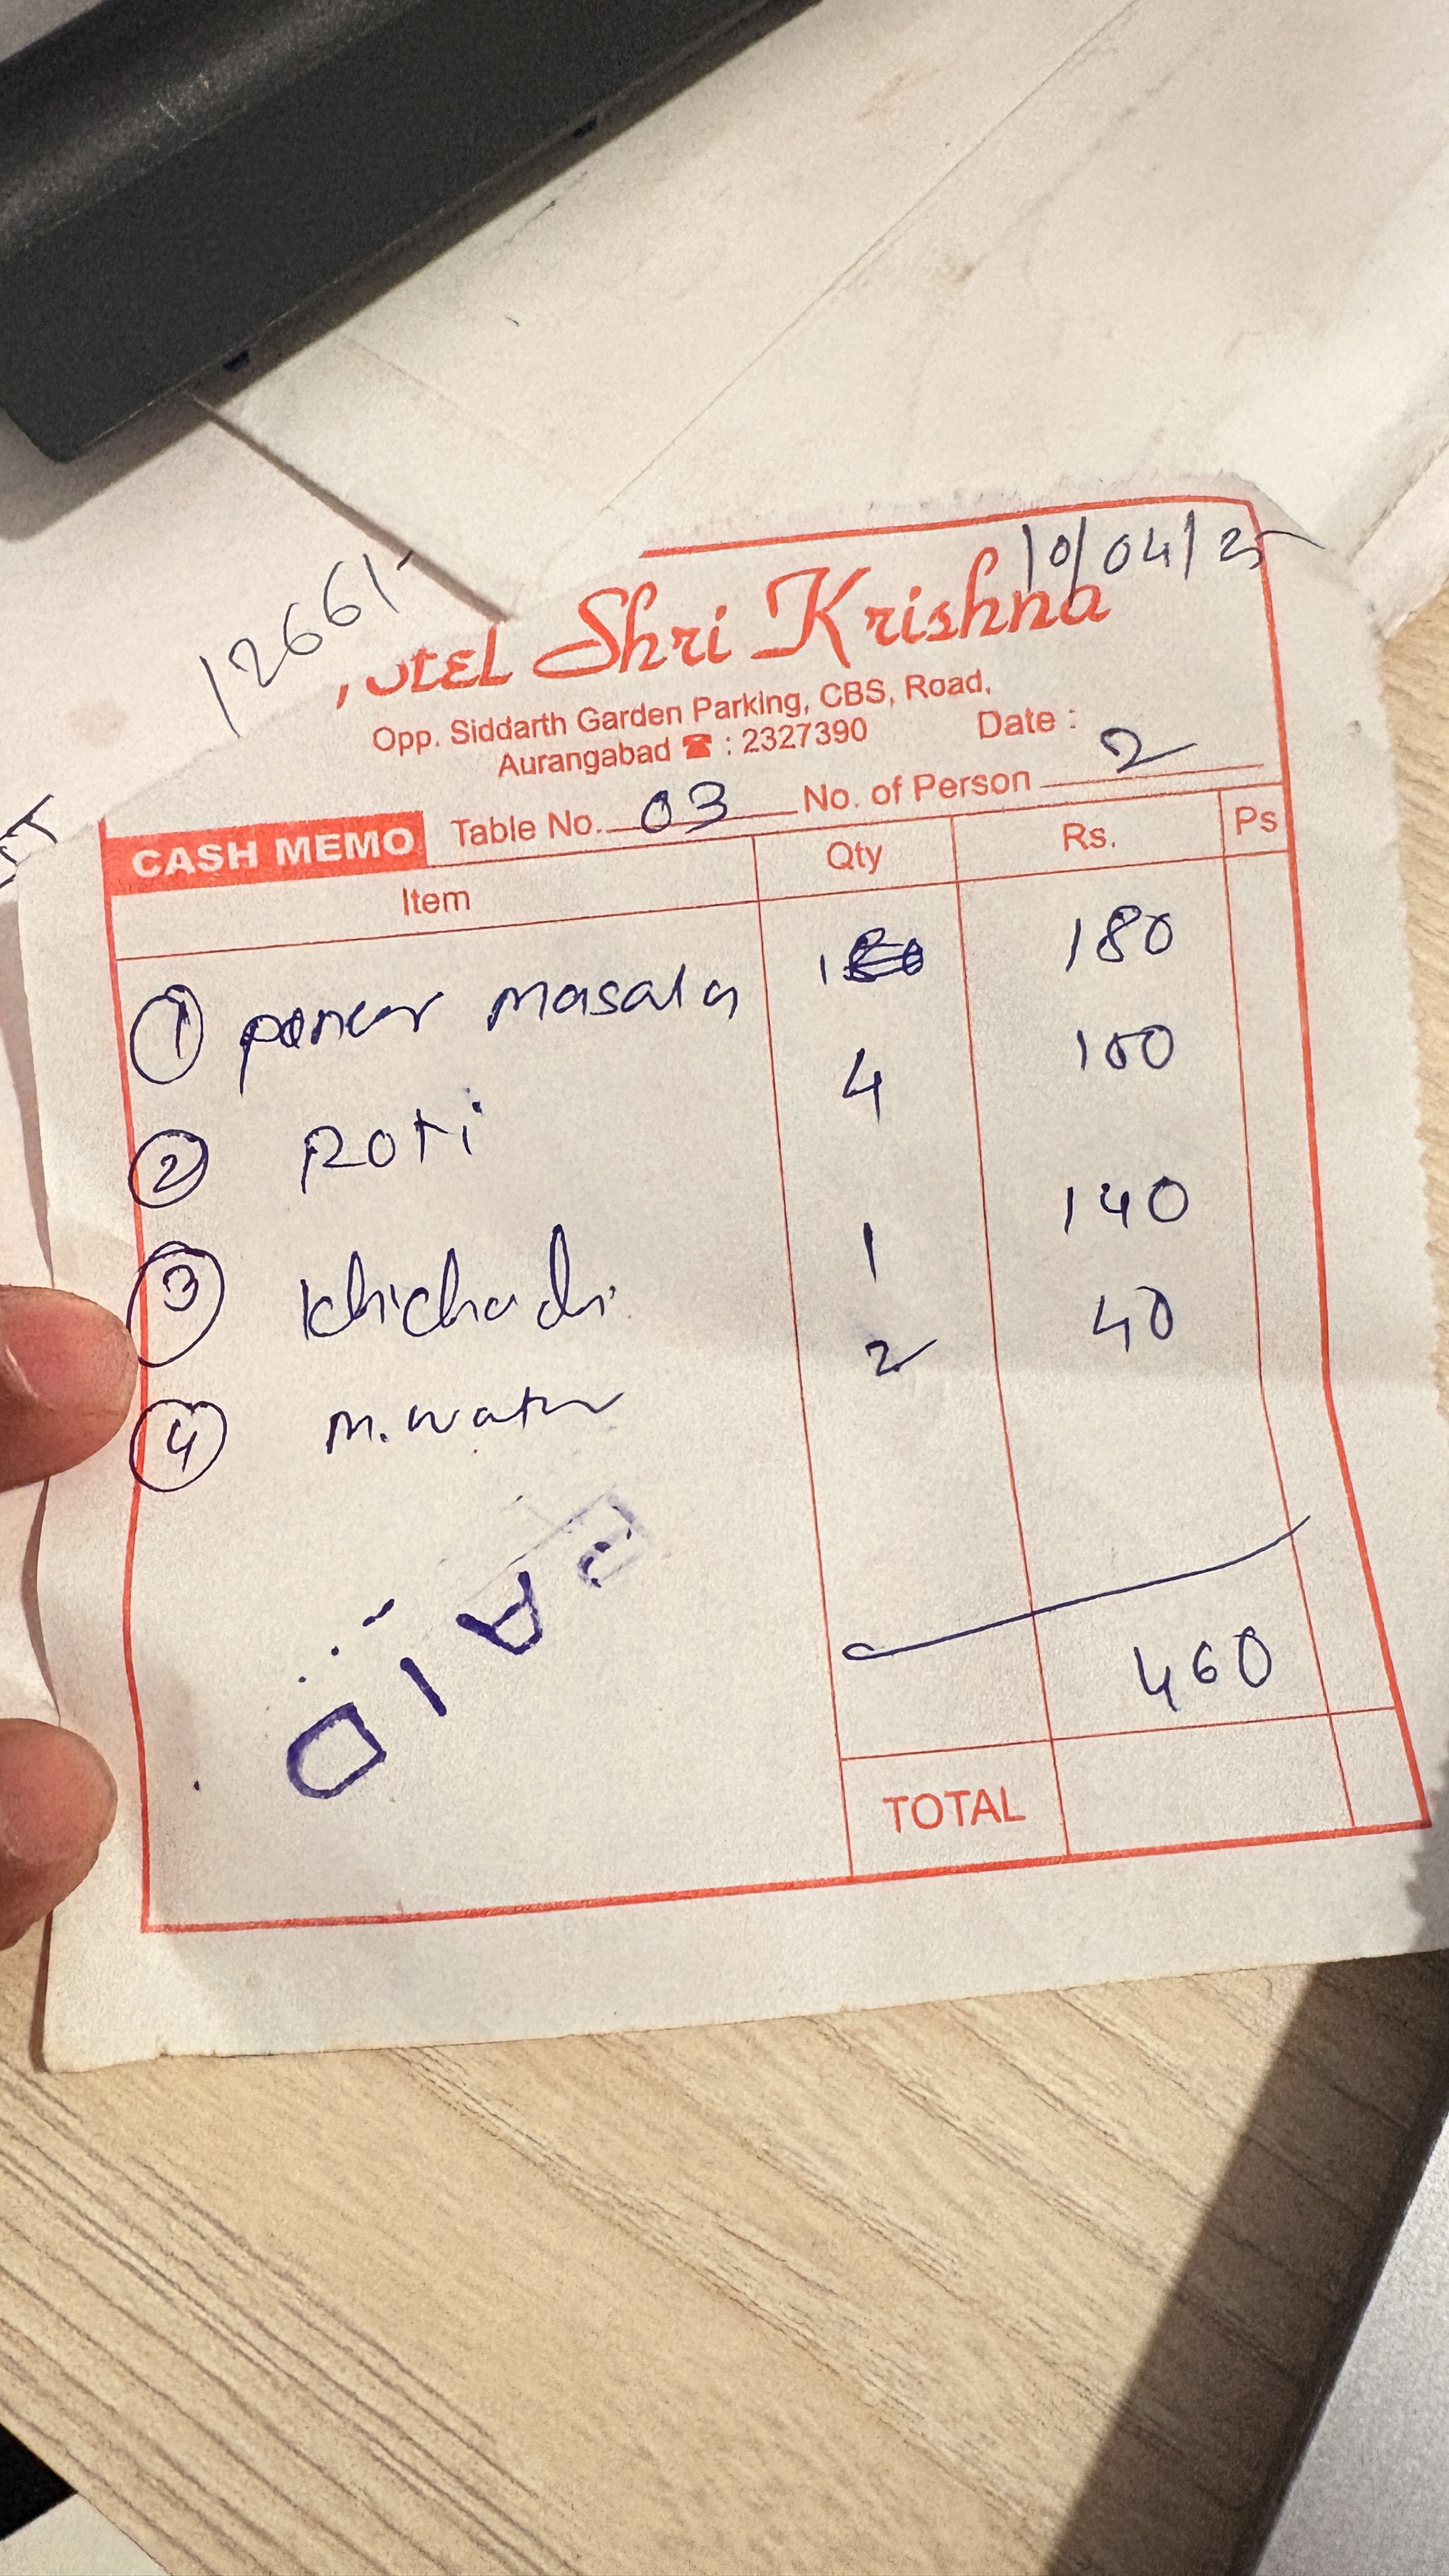 10/04/25
1266/-
otel Shri Krishna
Opp. Siddarth Garden Parking, CBS, Road,
Aurangabad ☎ : 2327390 Date :
CASH MEMO Table No. 03 No. of Person 2
Item Qty Rs. Ps
① paneer masala 1 180
② Roti 4 100
③ khichadi 1 140
④ m. water 2 40
460
PAID
TOTAL